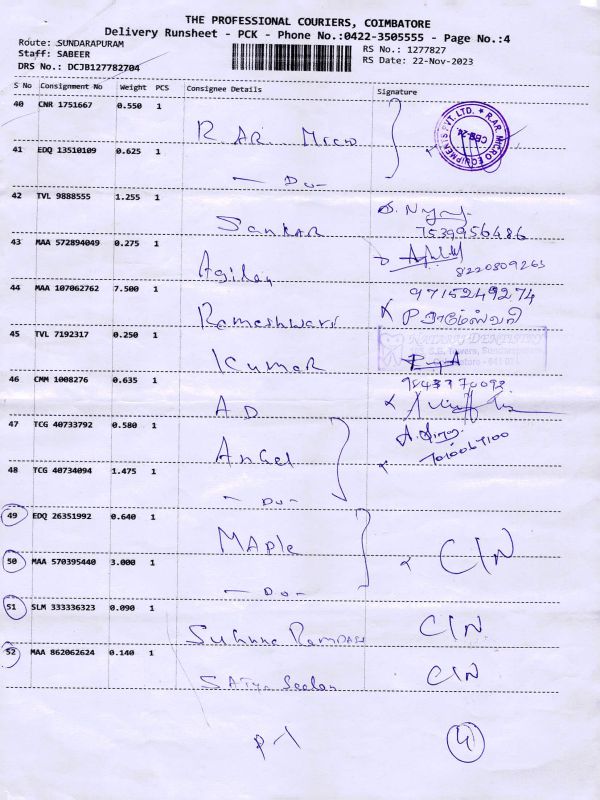 THE PROFESSIONAL COURIERS, COIMBATORE
Delivery Runsheet - PCK - Phone No.:0422-3505555 - Page No.:4
Route: SUNDARAPURAM
Staff: SABEER
DRS No.: DCJB127782704
RS No.: 1277827
RS Date: 22-Nov-2023
S No Consignment No Weight PCS Consignee Details Signature
40 CNR 1751667 0.550 1
R AR Micro
R.AR. MICRO EQUIPMENTS PVT. LTD.
CBE-24
41 EDQ 13510109 0.625 1
- Do -
42 TVL 9888555 1.255 1
Sankar
7539956486
43 MAA 572894049 0.275 1
Agilan
8220809265
44 MAA 107062762 7.500 1
9715249274
Rameshwari
P ராமேஸ்வரி
45 TVL 7192317 0.250 1
Kumar
46 CMM 1008276 0.635 1
9843770092
AD
47 TCG 40733792 0.580 1
Angel
7010067100
48 TCG 40734094 1.475 1
- Do -
49 EDQ 26351992 0.640 1
Maple
CIN
50 MAA 570395440 3.000 1
- Do -
51 SLM 333336323 0.090 1
CIN
52 MAA 862062624 0.140 1
CIN
P-1
4